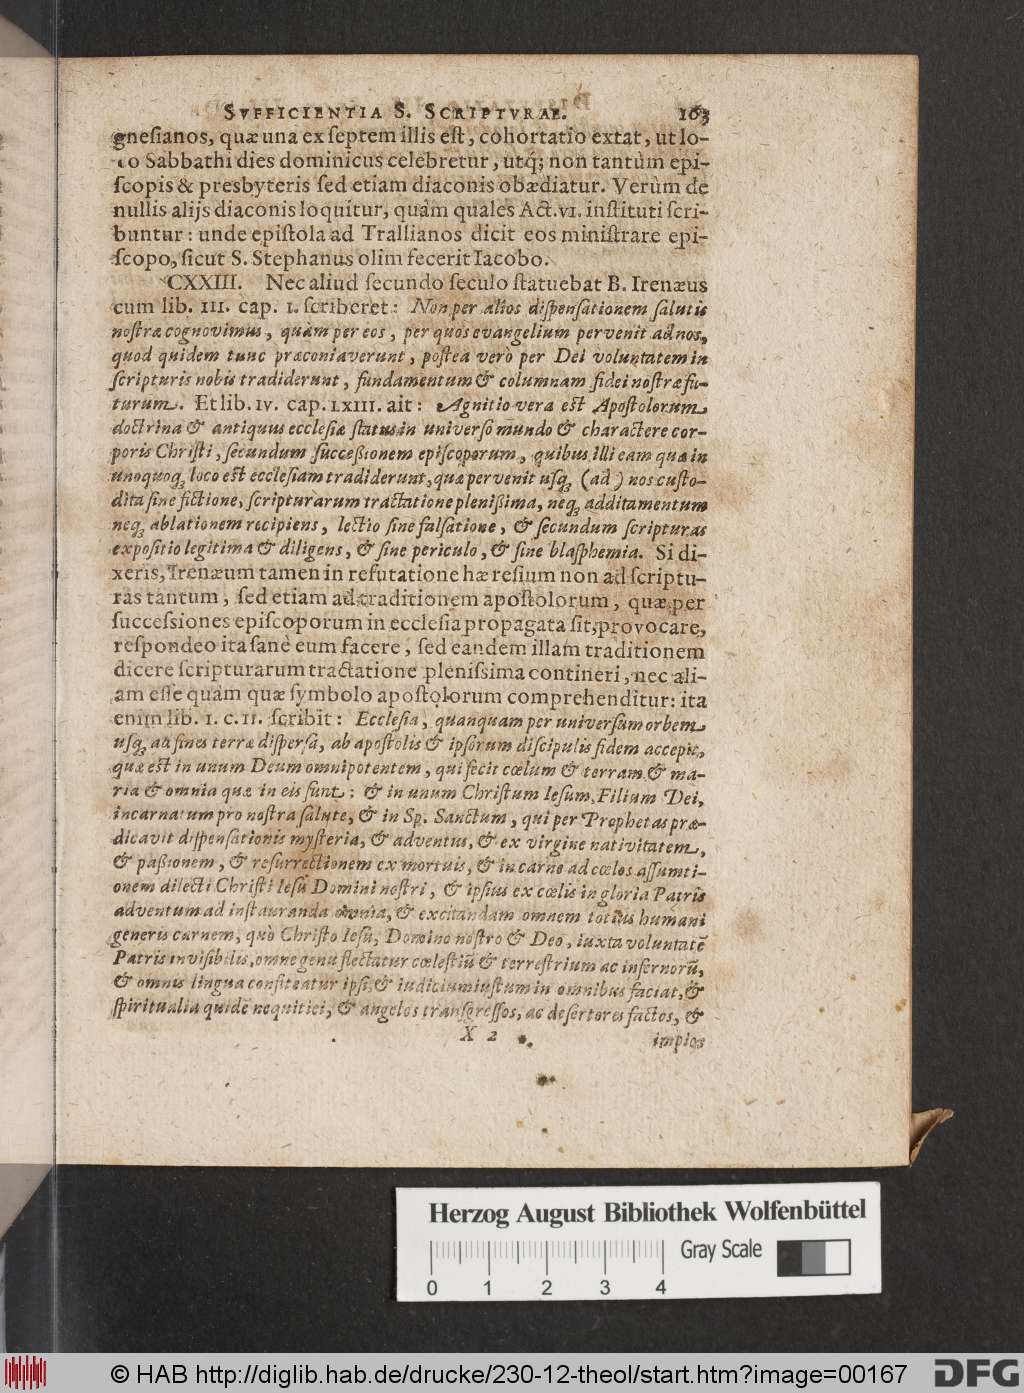 SVFFICIENTIA S. SCRIPTVRAE. 163
gnesianos, quæ una ex septem illis est, cohortatio extat, ut lo-
co Sabbathi dies dominicus celebretur, utq́; non tantùm epi-
scopis & presbyteris sed etiam diaconis obædiatur. Verùm de
nullis alijs diaconis loquitur, quàm quales Act. VI. instituti scri-
buntur: unde epistola ad Trallianos dicit eos ministrare epi-
scopo, sicut S. Stephanus olim fecerit Iacobo.
CXXIII. Nec aliud secundo seculo statuebat B. Irenæus
cum lib. III. cap. I. scriberet: Non per alios dispensationem salutis
nostræ cognovimus, quàm per eos, per quos evangelium pervenit ad nos,
quod quidem tunc præconiaverunt, postea verò per Dei voluntatem in
scripturis nobis tradiderunt, fundamentum & columnam fidei nostræ fu-
turum. Et lib. IV. cap. LXIII. ait: Agnitio vera est Apostolorum
doctrina & antiquus ecclesiæ status in universo mundo & charactere cor-
poris Christi, secundum successionem episcoporum, quibus illi eam quæ in
unoquoq; loco est ecclesiam tradiderunt, quæ pervenit usq; (ad) nos custo-
dita sine fictione, scripturarum tractatione plenissima, neq; additamentum
neq; ablationem recipiens, lectio sine falsatione, & secundum scripturas
expositio legitima & diligens, & sine periculo, & sine blasphemia. Si di-
xeris, Irenæum tamen in refutatione hæresium non ad scriptu-
ras tantum, sed etiam ad traditionem apostolorum, quæ per
successiones episcoporum in ecclesia propagata sit, provocare,
respondeo ita sanè eum facere, sed eandem illam traditionem
dicere scripturarum tractatione plenissima contineri, nec ali-
am esse quàm quæ symbolo apostolorum comprehenditur: ita
enim lib. I. c. II. scribit: Ecclesia, quanquam per universum orbem
usq; ad fines terræ dispersa, ab apostolis & ipsorum discipulis fidem accepit,
quæ est in unum Deum omnipotentem, qui fecit cœlum & terram & ma-
ria & omnia quæ in eis sunt: & in unum Christum Iesum, Filium Dei,
incarnatum pro nostra salute, & in Sp. Sanctum, qui per Prophetas præ-
dicavit dispensationis mysteria, & adventus, & ex virgine nativitatem,
& passionem, & resurrectionem ex mortuis, & in carne ad cœlos assumti-
onem dilecti Christi Iesu Domini nostri, & ipsius ex cœlis in gloria Patris
adventum ad instauranda omnia, & excitandam omnem totius humani
generis carnem, quò Christo Iesu, Domino nostro & Deo, iuxta voluntatē
Patris invisibilis, omne genu flectatur cœlestiū & terrestrium ac infernorū,
& omnis lingua confiteatur ipsi, & iudicium iustum in omnibus faciat, &
spiritualia quidē nequitiei, & angelos transgressos, ac desertores factos, &
X 2 impios
Herzog August Bibliothek Wolfenbüttel
Gray Scale
0 1 2 3 4
© HAB http://diglib.hab.de/drucke/230-12-theol/start.htm?image=00167 DFG